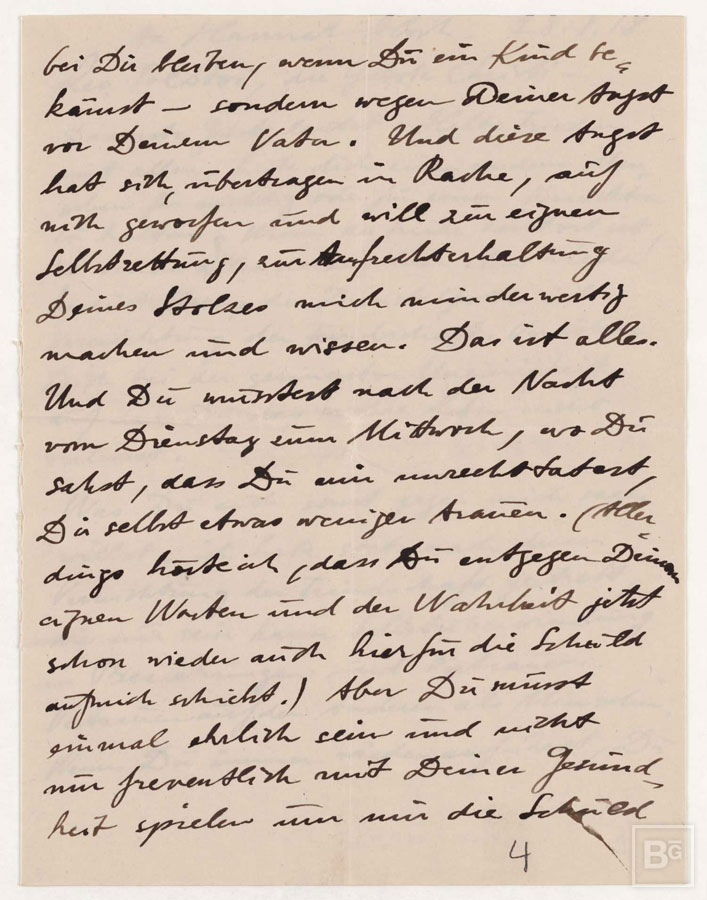 bei Dir bleiben, wenn Du ein Kind be-
kämst – sondern wegen Deiner Angst
vor Deinem Vater. Und diese Angst
hat sich, übertragen in Rache, auf
mich geworfen und will zur eignen
Selbstrettung, zur Aufrechterhaltung
Deines Stolzes mich minderwertig
machen und wissen. Das ist alles.
Und Du musstest nach der Nacht
vom Dienstag zum Mittwoch, wo Du
sahst, dass Du mir unrecht tatest,
Dir selbst etwas weniger trauen. (Aller-
dings hörte ich, dass Du entgegen Deinen
eignen Worten und der Wahrheit jetzt
schon wieder auch hierfür die Schuld
auf mich schiebst.) Aber Du musst
einmal ehrlich sein und nicht
nur freventlich mit Deiner Gesund-
heit spielen um mir die Schuld
4
BG